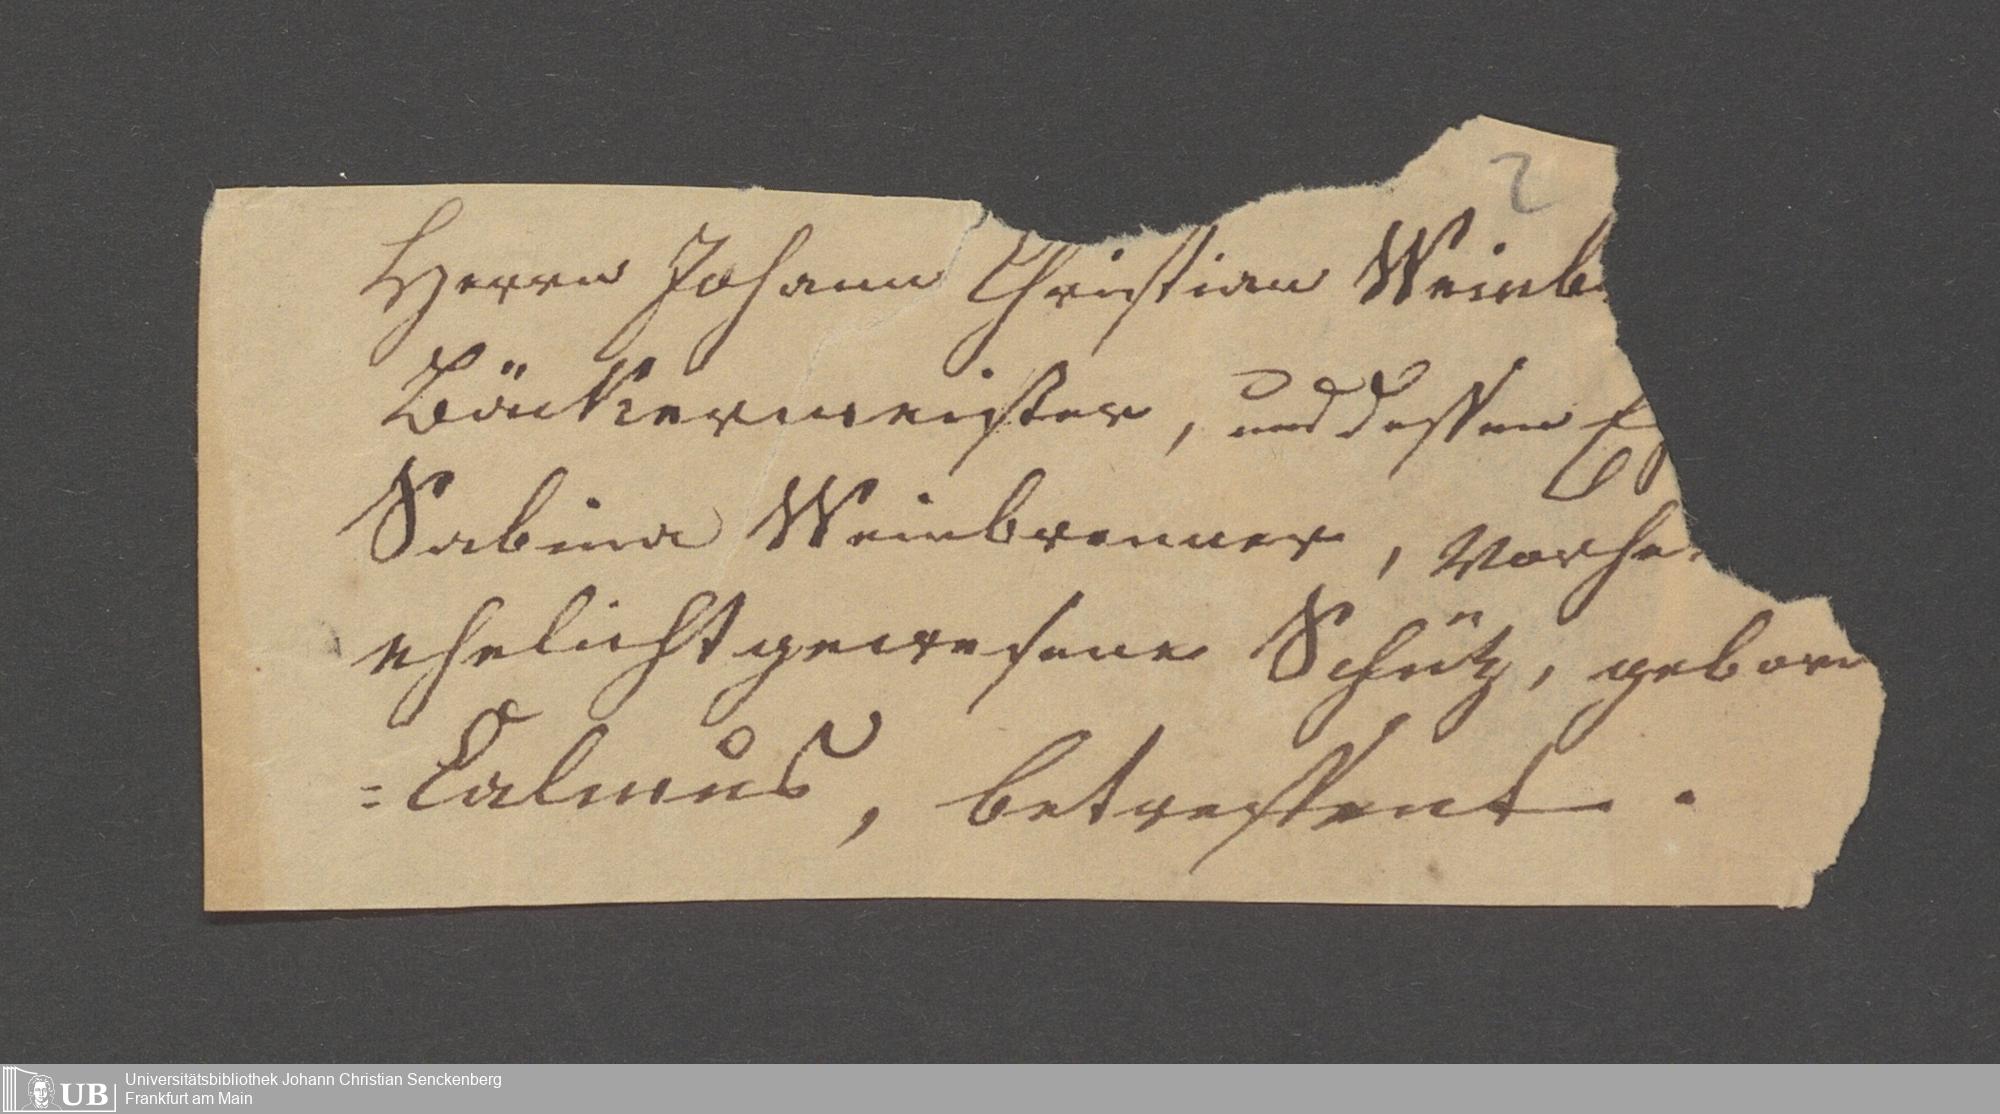 2
Herrn Johann Christian Weinb
Bäckermeister, und dessen Eh
Sabina Weinbrenner, vorhe
ehelicht gewesene Schütz, geborn
=Calmus, betreffent.
UB
Universitätsbibliothek Johann Christian Senckenberg
Frankfurt am Main